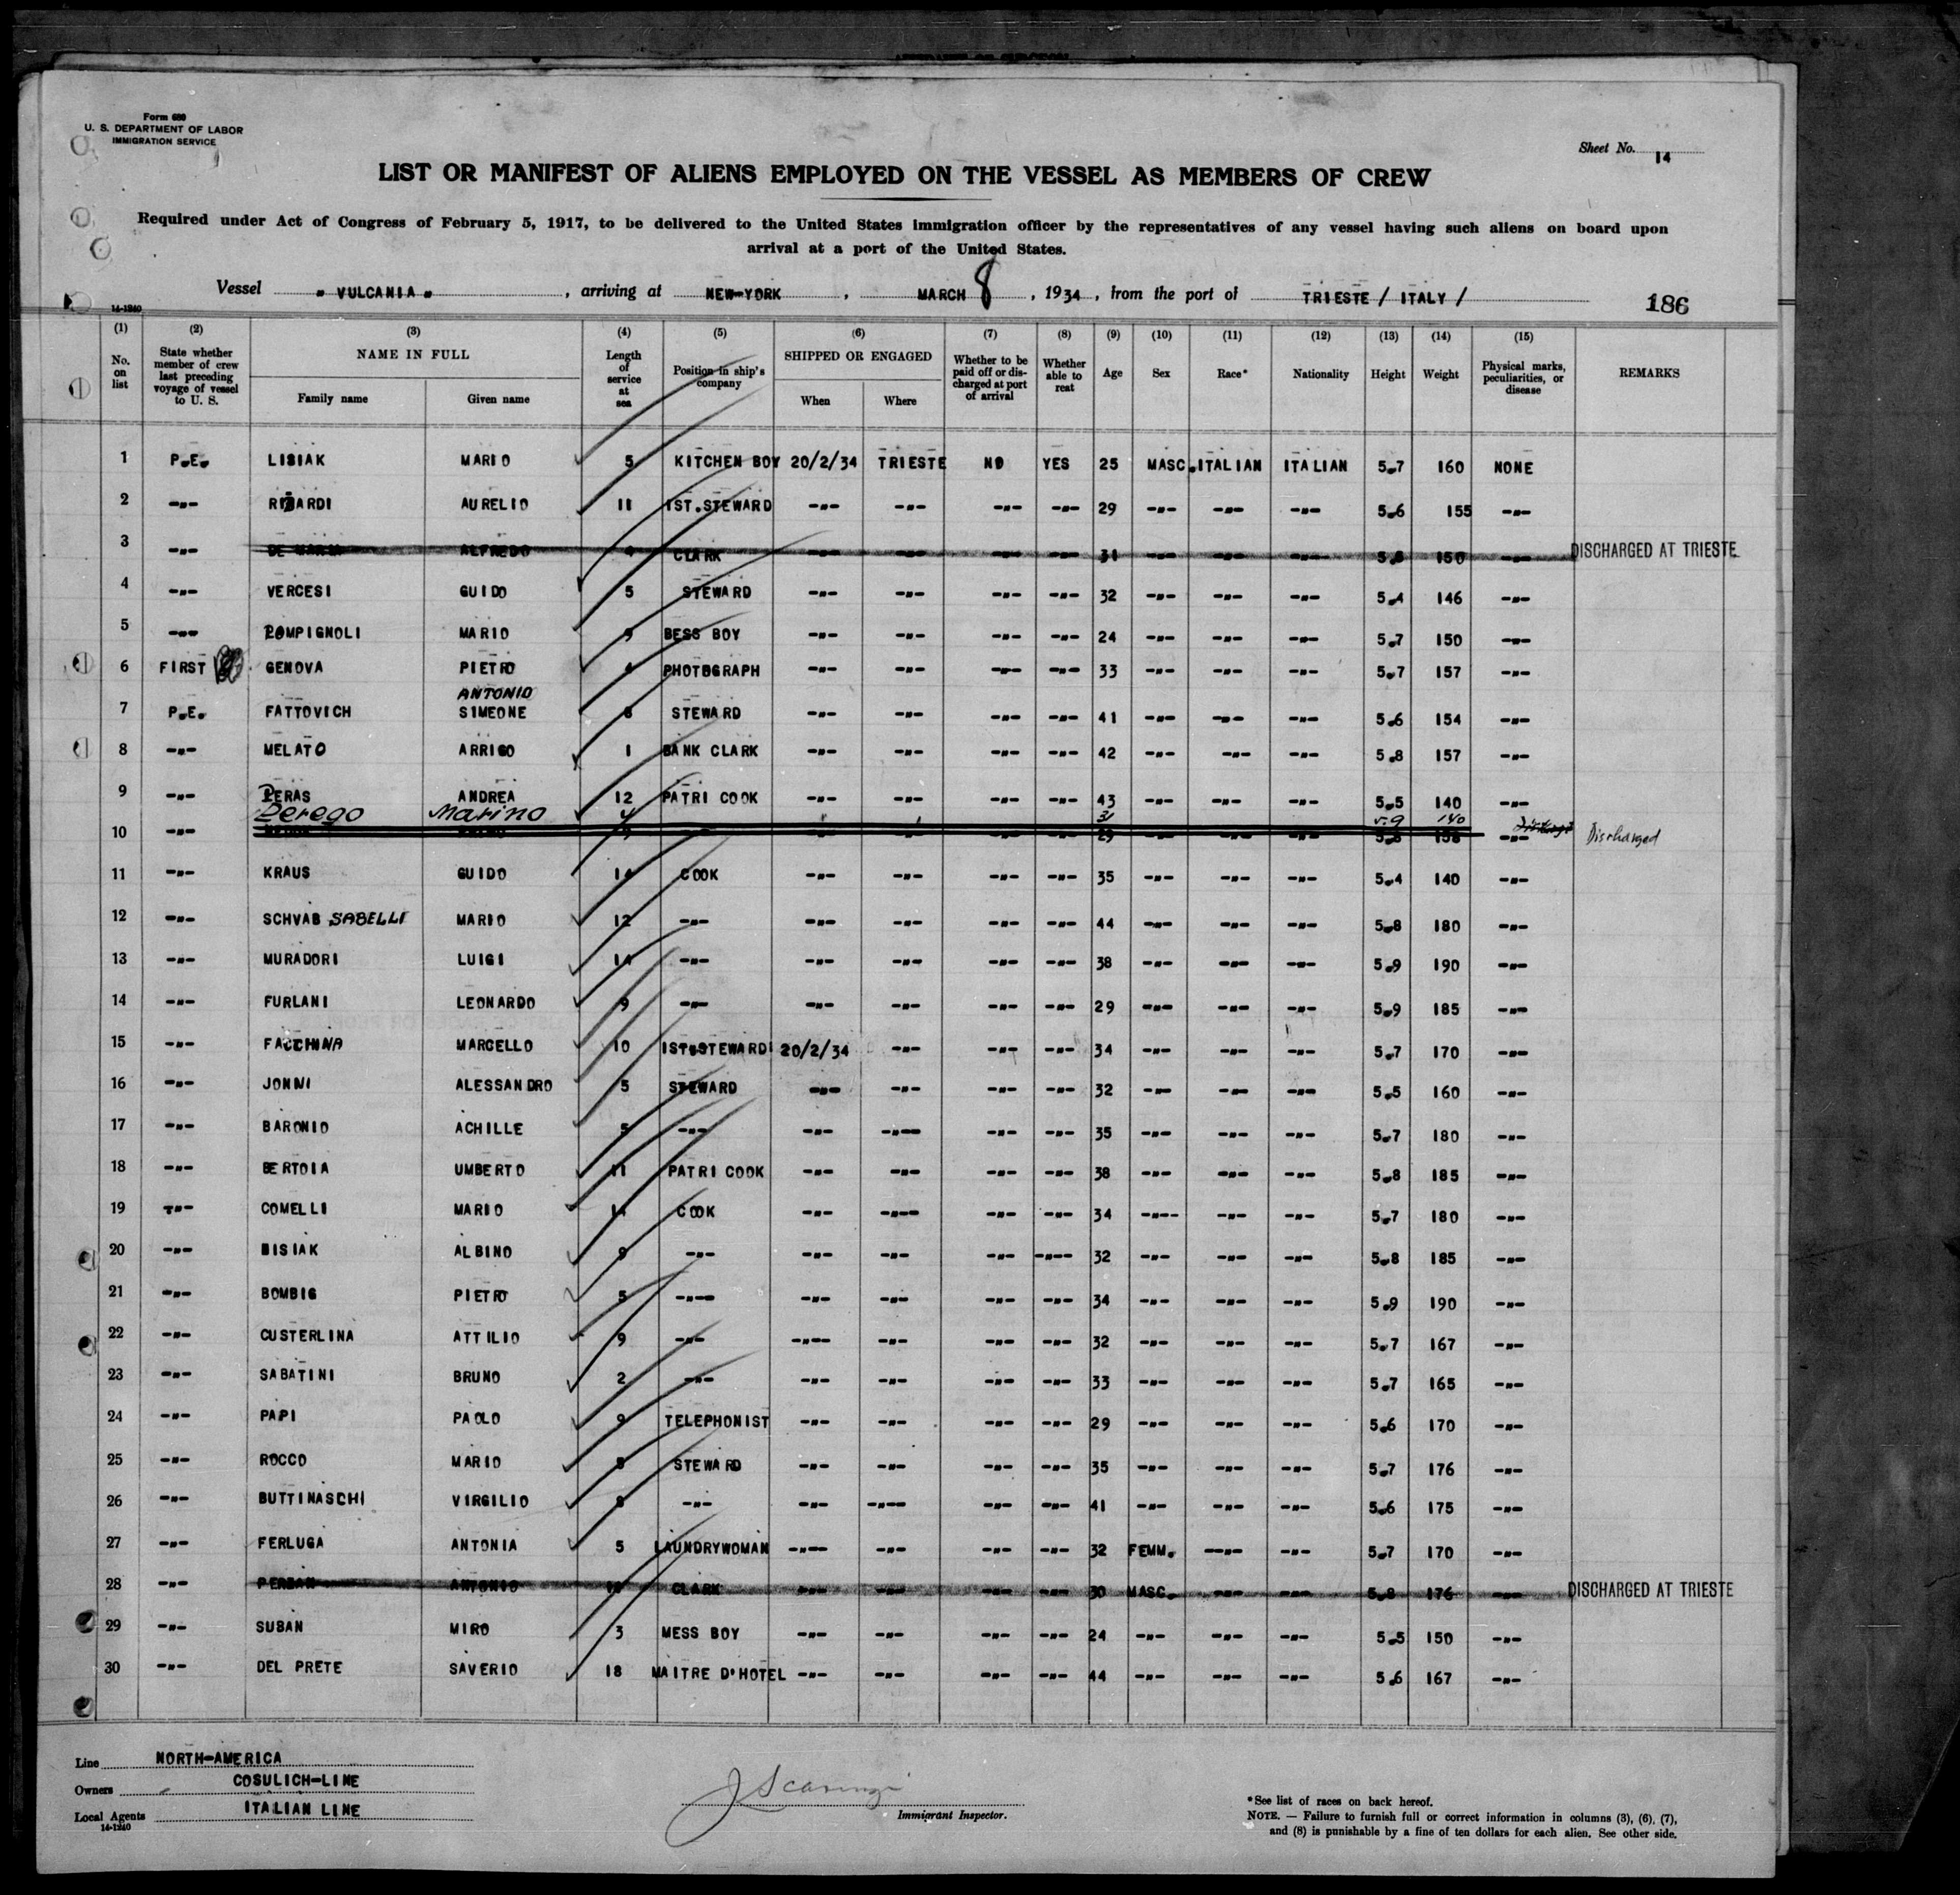 Form 680
U. S. DEPARTMENT OF LABOR
IMMIGRATION SERVICE
Sheet No. 14
LIST OR MANIFEST OF ALIENS EMPLOYED ON THE VESSEL AS MEMBERS OF CREW
Required under Act of Congress of February 5, 1917, to be delivered to the United States immigration officer by the representatives of any vessel having such aliens on board upon
arrival at a port of the United States.
Vessel "VULCANIA", arriving at NEW-YORK, MARCH 8, 1934, from the port of TRIESTE / ITALY /
186
14-1240
(1) (2) (3) (4) (5) (6) (7) (8) (9) (10) (11) (12) (13) (14) (15)
No. on list | State whether member of crew last preceding voyage of vessel to U. S. | NAME IN FULL | Length of service at sea | Position in ship's company | SHIPPED OR ENGAGED | Whether to be paid off or discharged at port of arrival | Whether able to reat | Age | Sex | Race* | Nationality | Height | Weight | Physical marks, peculiarities, or disease | REMARKS
Family name | Given name | When | Where
1 P.E. LISIAK MARIO 5 KITCHEN BOY 20/2/34 TRIESTE NO YES 25 MASC. ITALIAN ITALIAN 5.7 160 NONE
2 -"- AURELIO 11 1ST.STEWARD -"- -"- -"- -"- 29 -"- -"- -"- 5.6 155 -"-
3 -"- ALFREDO CLARK -"- -"- -"- -"- 31 -"- -"- -"- 150 -"- DISCHARGED AT TRIESTE
4 -"- VERCESI GUIDO 5 STEWARD -"- -"- -"- -"- 32 -"- -"- -"- 5.4 146 -"-
5 -"- POMPIGNOLI MARIO 9 BESS BOY -"- -"- -"- -"- 24 -"- -"- -"- 5.7 150 -"-
6 FIRST GENOVA PIETRO 4 PHOTOGRAPH -"- -"- -"- -"- 33 -"- -"- -"- 5.7 157 -"-
ANTONIO
7 P.E. FATTOVICH SIMEONE 8 STEWARD -"- -"- -"- -"- 41 -"- -"- -"- 5.6 154 -"-
8 -"- MELATO ARRIGO 1 BANK CLARK -"- -"- -"- -"- 42 -"- -"- -"- 5.8 157 -"-
9 -"- PERAS ANDREA 12 PATRI COOK -"- -"- -"- -"- 43 -"- -"- -"- 5.5 140 -"-
Perego Marino 4 31 5.9 140
10 -"- 29 158 -"- Discharged
11 -"- KRAUS GUIDO 14 COOK -"- -"- -"- -"- 35 -"- -"- -"- 5.4 140 -"-
12 -"- SCHVAB SABELLI MARIO 12 -"- -"- -"- -"- -"- 44 -"- -"- -"- 5.8 180 -"-
13 -"- MURADORI LUIGI 14 -"- -"- -"- -"- -"- 38 -"- -"- -"- 5.9 190 -"-
14 -"- FURLANI LEONARDO 9 -"- -"- -"- -"- -"- 29 -"- -"- -"- 5.9 185 -"-
15 -"- FACCHINA MARCELLO 10 1ST.STEWARD 20/2/34 -"- -"- -"- 34 -"- -"- -"- 5.7 170 -"-
16 -"- JONNI ALESSANDRO 5 STEWARD -"- -"- -"- -"- 32 -"- -"- -"- 5.5 160 -"-
17 -"- BARONIO ACHILLE 5 -"- -"- -"- -"- -"- 35 -"- -"- -"- 5.7 180 -"-
18 -"- BERTOIA UMBERTO 11 PATRI COOK -"- -"- -"- -"- 38 -"- -"- -"- 5.8 185 -"-
19 -"- COMELLI MARIO 14 COOK -"- -"- -"- -"- 34 -"- -"- -"- 5.7 180 -"-
20 -"- BISIAK ALBINO 9 -"- -"- -"- -"- -"- 32 -"- -"- -"- 5.8 185 -"-
21 -"- BOMBIG PIETRO 5 -"- -"- -"- -"- -"- 34 -"- -"- -"- 5.9 190 -"-
22 -"- CUSTERLINA ATTILIO 9 -"- -"- -"- -"- -"- 32 -"- -"- -"- 5.7 167 -"-
23 -"- SABATINI BRUNO 2 -"- -"- -"- -"- -"- 33 -"- -"- -"- 5.7 165 -"-
24 -"- PAPI PAOLO 9 TELEPHONIST -"- -"- -"- -"- 29 -"- -"- -"- 5.6 170 -"-
25 -"- ROCCO MARIO STEWARD -"- -"- -"- -"- 35 -"- -"- -"- 5.7 176 -"-
26 -"- BUTTINASCHI VIRGILIO 8 -"- -"- -"- -"- -"- 41 -"- -"- -"- 5.6 175 -"-
27 -"- FERLUGA ANTONIA 5 LAUNDRYWOMAN -"- -"- -"- -"- 32 FEMM. -"- -"- 5.7 170 -"-
28 -"- ANTONIO CLARK -"- -"- -"- -"- 30 MASC. -"- -"- 5.8 176 -"- DISCHARGED AT TRIESTE
29 -"- SUSAN MIRO 3 MESS BOY -"- -"- -"- -"- 24 -"- -"- -"- 5.5 150 -"-
30 -"- DEL PRETE SAVERIO 18 MAITRE D'HOTEL -"- -"- -"- -"- 44 -"- -"- -"- 5.6 167 -"-
Line NORTH-AMERICA
Owners COSULICH-LINE
Local Agents ITALIAN LINE
14-1240
Immigrant Inspector.
*See list of races on back hereof.
NOTE. — Failure to furnish full or correct information in columns (3), (6), (7),
and (8) is punishable by a fine of ten dollars for each alien. See other side.